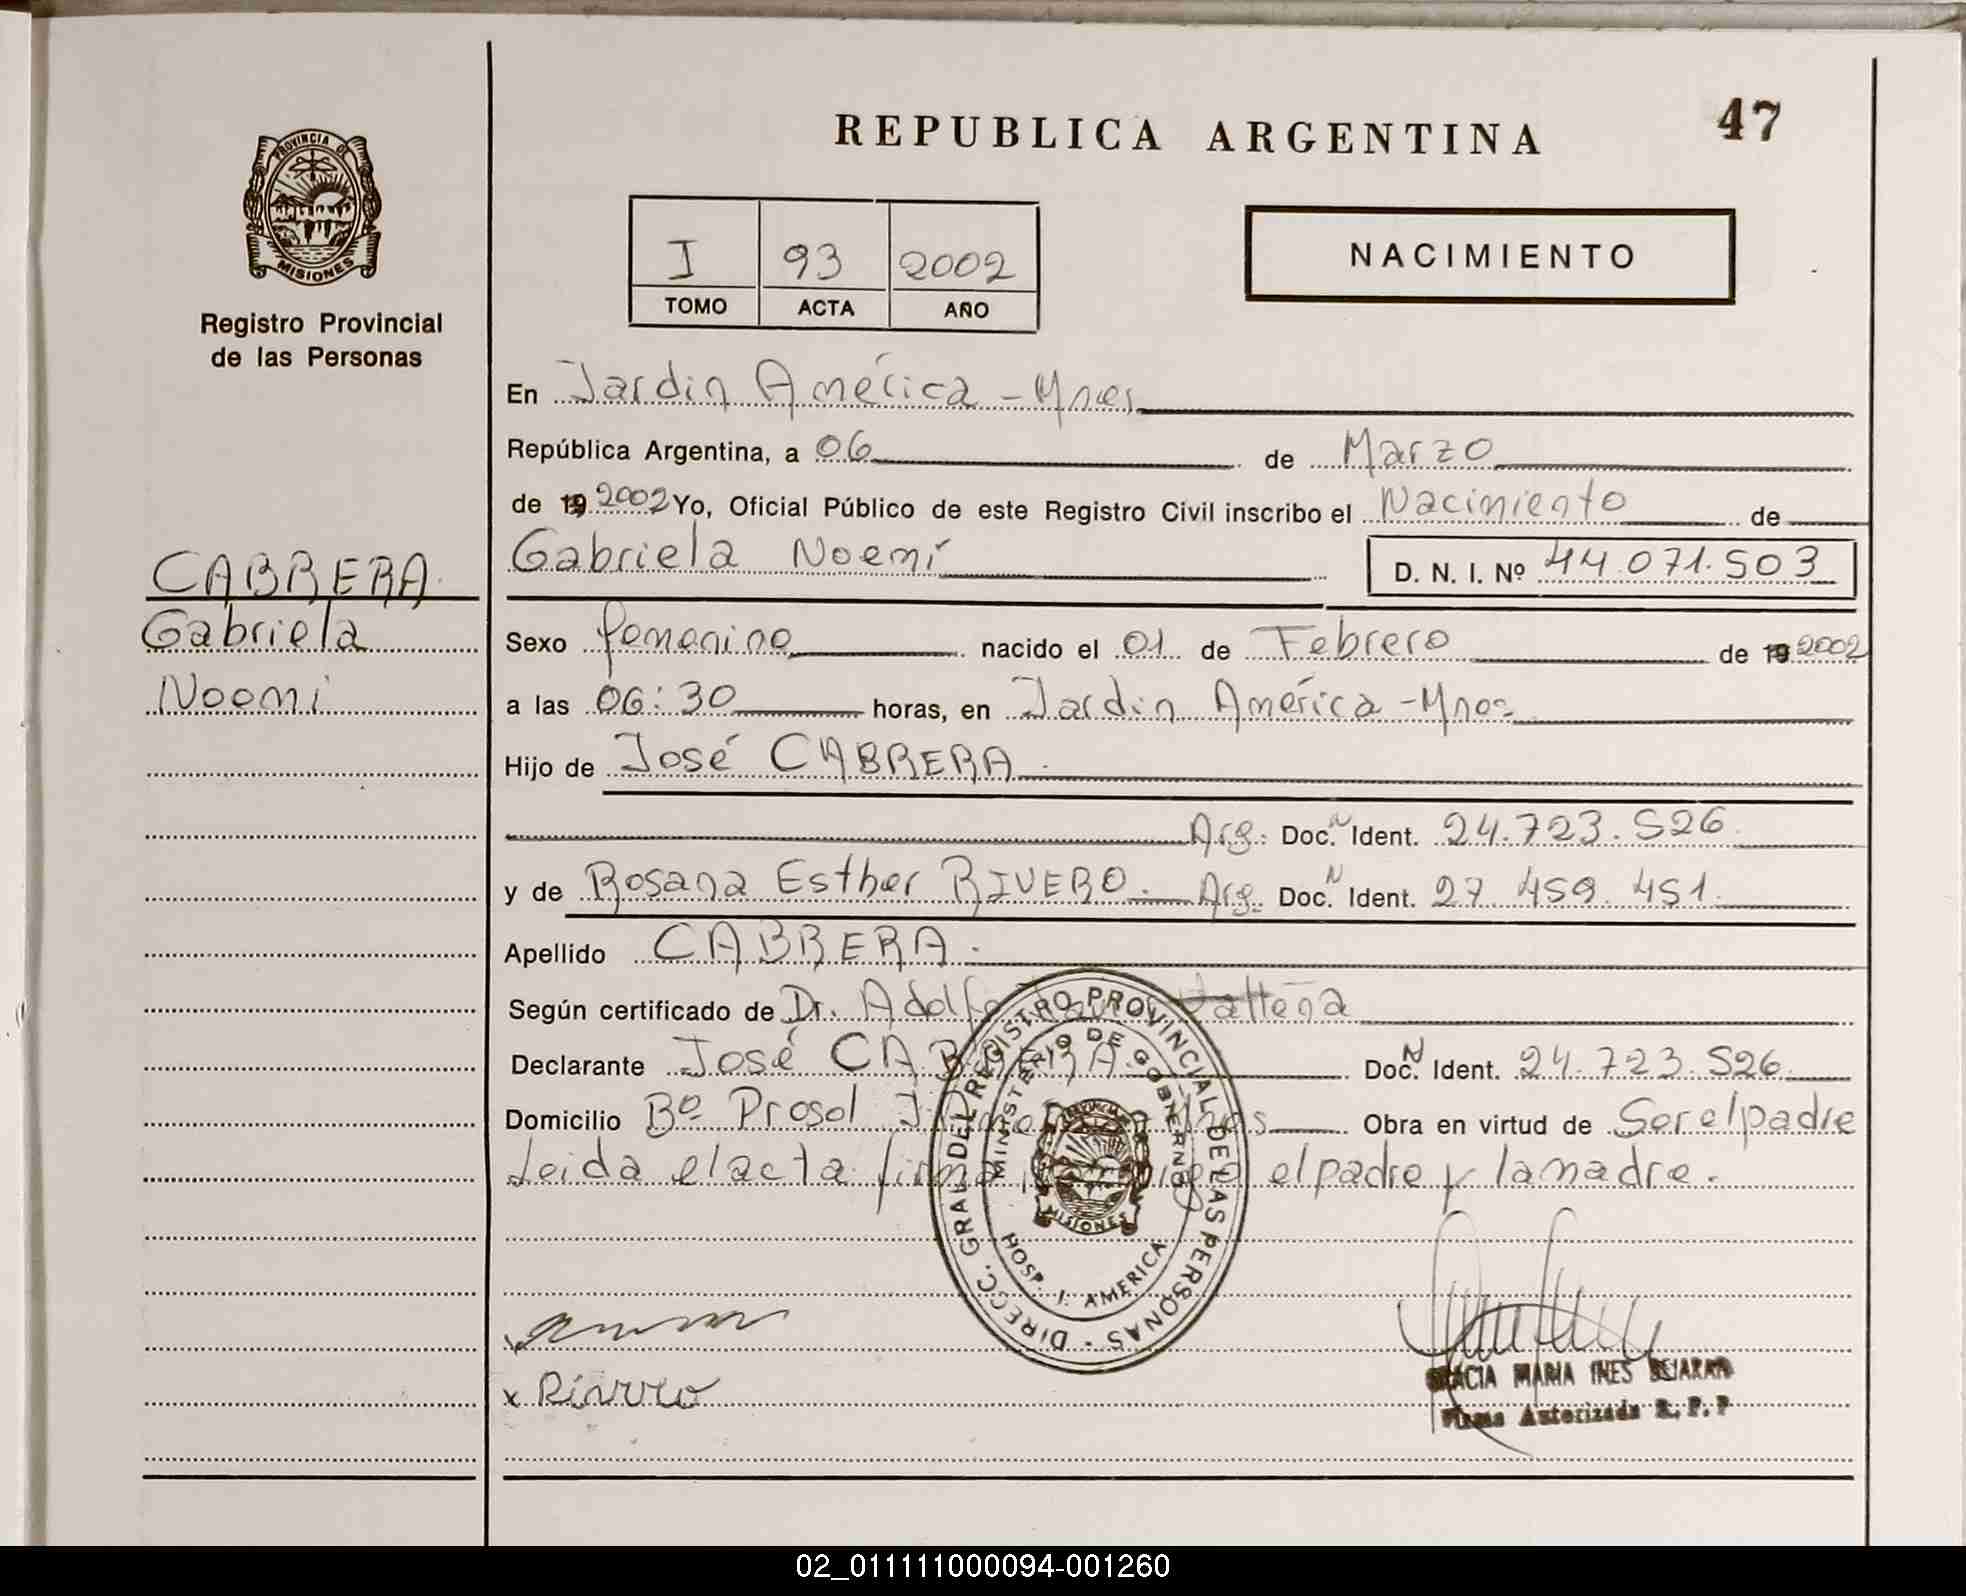 REPUBLICA ARGENTINA
47
PROVINCIA DE
MISIONES
Registro Provincial
de las Personas
I 93 2002
TOMO ACTA AÑO
NACIMIENTO
En Jardin América - Mnes
República Argentina, a 06 de Marzo
de 19 2002 Yo, Oficial Público de este Registro Civil inscribo el Nacimiento de
Gabriela Noemí D. N. I. Nº 44.071.503
CABRERA
Gabriela
Noemi
Sexo femenino nacido el 01 de Febrero de 19 2002
a las 06:30 horas, en Jardin América - Mnes
Hijo de José CABRERA
Arg. Doc. N Ident. 24.723.526
y de Rosana Esther RIVERO. Arg. Doc. N Ident. 27.459.451.
Apellido CABRERA.
Según certificado de Dr. Adolfo
Declarante José CABRERA. Doc. N Ident. 24.723.526
Domicilio Bº Prosol Obra en virtud de Ser el padre
Leida el acta firma el padre y la madre.
DIRECC. GRAL. DEL REGISTRO PROVINCIAL DE LAS PERSONAS
MINISTERIO DE GOBIERNO
HOSP. J. AMERICA
PROVINCIA
MISIONES
x Rivero
MARIA INES
Firma Autorizada R. P. P
02_011111000094-001260